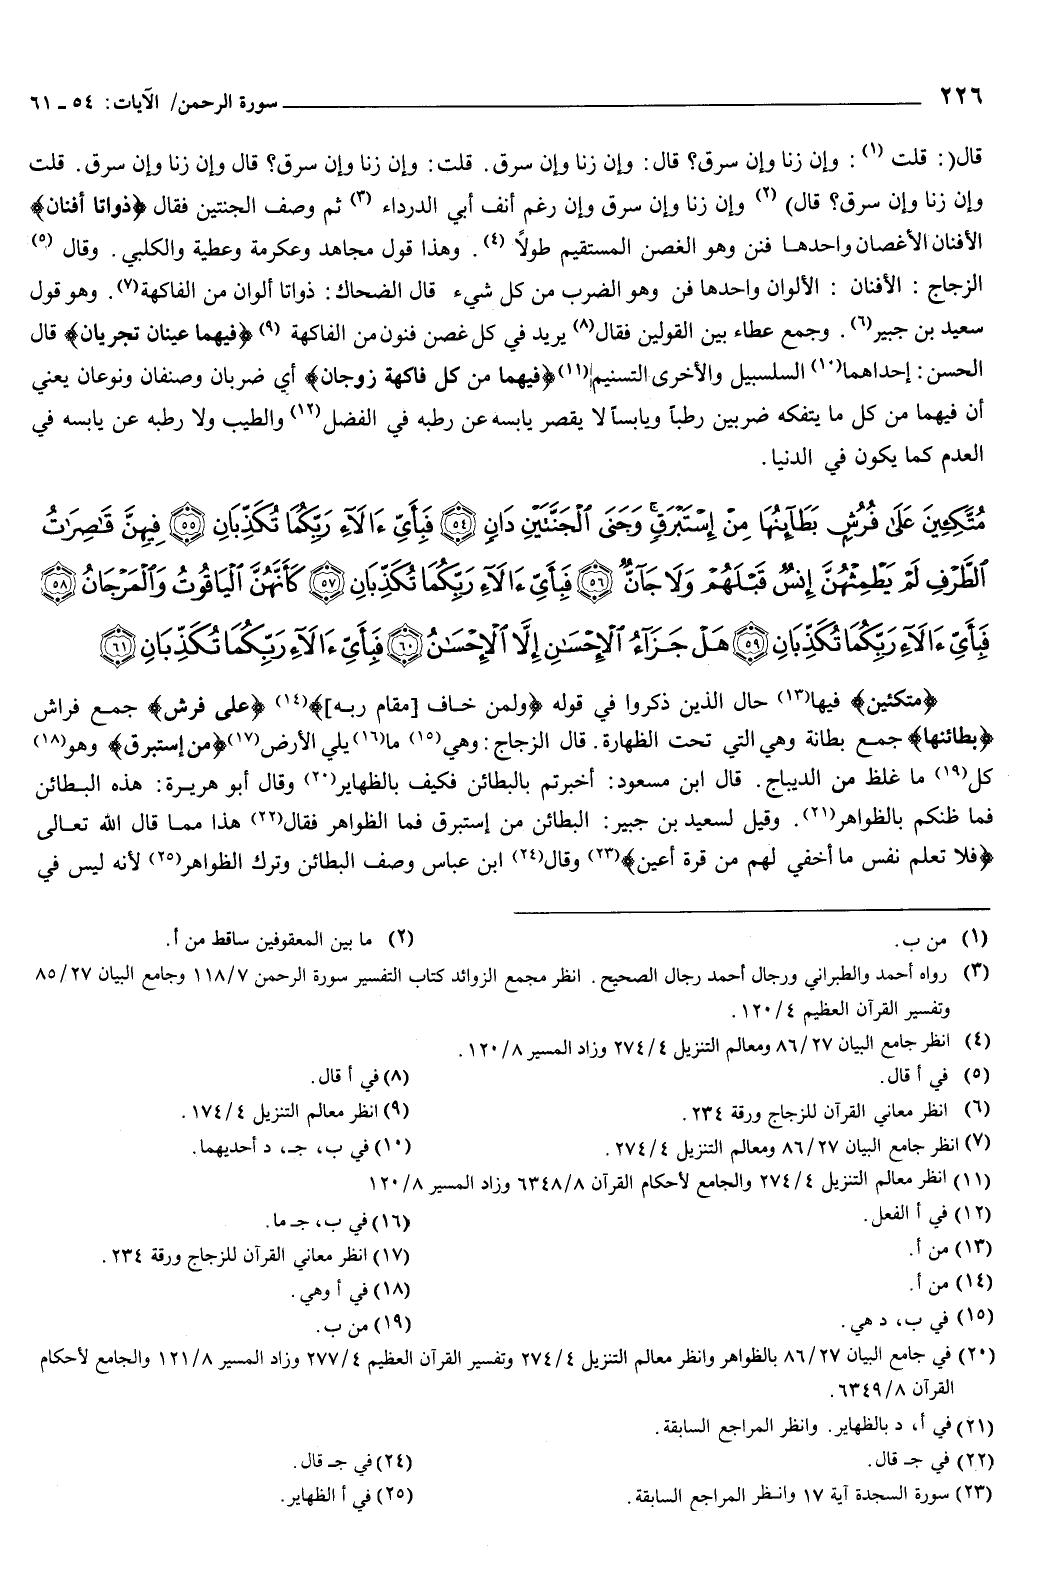 ٢٢٦ سورة الرحمن/ الآيات: ٥٤ ـ ٦١
قال(: قلت (١) : وإن زنا وإن سرق؟ قال: وإن زنا وإن سرق. قلت: وإن زنا وإن سرق؟ قال وإن زنا وإن سرق. قلت
وإن زنا وإن سرق؟ قال) (٢) وإن زنا وإن سرق وإن رغم أنف أبي الدرداء (٣) ثم وصف الجنتين فقال ﴿ذواتا أفنان﴾
الأفنان الأغصان واحدهـا فنن وهو الغصن المستقيم طولاً (٤) . وهذا قول مجاهد وعكرمة وعطية والكلبي. وقال (٥)
الزجاج : الأفنان : الألوان واحدها فن وهو الضرب من كل شيء قال الضحاك: ذواتا ألوان من الفاكهة(٧). وهو قول
سعيد بن جبير(٦). وجمع عطاء بين القولين فقال(٨) يريد في كل غصن فنون من الفاكهة (٩) ﴿فيهما عينان تجريان﴾ قال
الحسن: إحداهما(١٠) السلسبيل والأخرى التسنيم(١١)﴿فيهما من كل فاكهة زوجان﴾ أي ضربان وصنفان ونوعان يعني
أن فيهما من كل ما يتفكه ضربين رطباً ويابساً لا يقصر يابسه عن رطبه في الفضل(١٢) والطيب ولا رطبه عن يابسه في
العدم كما يكون في الدنيا.
مُتَّكِـِٔينَ عَلَىٰ فُرُشٍۭ بَطَآئِنُهَا مِنْ إِسْتَبْرَقٍۚ وَجَنَى ٱلْجَنَّتَيْنِ دَانٍ ﴿٥٤﴾ فَبِأَىِّ ءَالَآءِ رَبِّكُمَا تُكَذِّبَانِ ﴿٥٥﴾ فِيهِنَّ قَـٰصِرَٰتُ
ٱلطَّرْفِ لَمْ يَطْمِثْهُنَّ إِنسٌ قَبْلَهُمْ وَلَا جَآنٌّ ﴿٥٦﴾ فَبِأَىِّ ءَالَآءِ رَبِّكُمَا تُكَذِّبَانِ ﴿٥٧﴾ كَأَنَّهُنَّ ٱلْيَاقُوتُ وَٱلْمَرْجَانُ ﴿٥٨﴾
فَبِأَىِّ ءَالَآءِ رَبِّكُمَا تُكَذِّبَانِ ﴿٥٩﴾ هَلْ جَزَآءُ ٱلْإِحْسَـٰنِ إِلَّا ٱلْإِحْسَـٰنُ ﴿٦٠﴾ فَبِأَىِّ ءَالَآءِ رَبِّكُمَا تُكَذِّبَانِ ﴿٦١﴾
﴿متكئين﴾ فيها(١٣) حال الذين ذكروا في قوله ﴿ولمن خـاف [مقام ربـه]﴾(١٤) ﴿على فرش﴾ جمـع فراش
﴿بطائنها﴾ جمـع بطانة وهي التي تحت الظهارة. قال الزجاج: وهي(١٥) ما(١٦) يلي الأرض(١٧)﴿من إستبرق﴾ وهو(١٨)
كل(١٩) ما غلظ من الديباج. قال ابن مسعود: أخبرتم بالبطائن فكيف بالظهاير(٢٠) وقال أبو هريـرة: هذه البـطائن
فما ظنكم بالظواهر(٢١). وقيل لسعيد بن جبير: البطائن من إستبرق فما الظواهر فقال(٢٢) هذا ممـا قال الله تعـالى
﴿فلا تعلم نفس ما أخفي لهم من قرة أعين﴾(٢٣) وقال(٢٤) ابن عباس وصف البطائن وترك الظواهر(٢٥) لأنه ليس في
(١) من ب.
(٢) ما بين المعقوفين ساقط من أ.
(٣) رواه أحمد والطبراني ورجال أحمد رجال الصحيح. انظر مجمع الزوائد كتاب التفسير سورة الرحمن ١١٨/٧ وجامع البيان ٨٥/٢٧
وتفسير القرآن العظيم ١٢٠/٤.
(٤) انظر جامع البيان ٨٦/٢٧ ومعالم التنزيل ٢٧٤/٤ وزاد المسير ١٢٠/٨.
(٥) في أ قال.
(٨) في أ قال.
(٦) انظر معاني القرآن للزجاج ورقة ٢٣٤.
(٩) انظر معالم التنزيل ١٧٤/٤.
(٧) انظر جامع البيان ٨٦/٢٧ ومعالم التنزيل ٢٧٤/٤.
(١٠) في ب، جـ، د أحديهما.
(١١) انظر معالم التنزيل ٢٧٤/٤ والجامع لأحكام القرآن ٦٣٤٨/٨ وزاد المسير ١٢٠/٨
(١٢) في أ الفعل.
(١٦) في ب، جـ ما.
(١٣) من أ.
(١٧) انظر معاني القرآن للزجاج ورقة ٢٣٤.
(١٤) من أ.
(١٨) في أ وهي.
(١٥) في ب، د هي.
(١٩) من ب.
(٢٠) في جامع البيان ٨٦/٢٧ بالظواهر وانظر معالم التنزيل ٢٧٤/٤ وتفسير القرآن العظيم ٢٧٧/٤ وزاد المسير ١٢١/٨ والجامع لأحكام
القرآن ٦٣٤٩/٨.
(٢١) في أ، د بالظهاير. وانظر المراجع السابقة.
(٢٢) في جـ قال.
(٢٤) في جـ قال.
(٢٣) سورة السجدة آية ١٧ وانـظر المراجع السابقة.
(٢٥) في أ الظهاير.